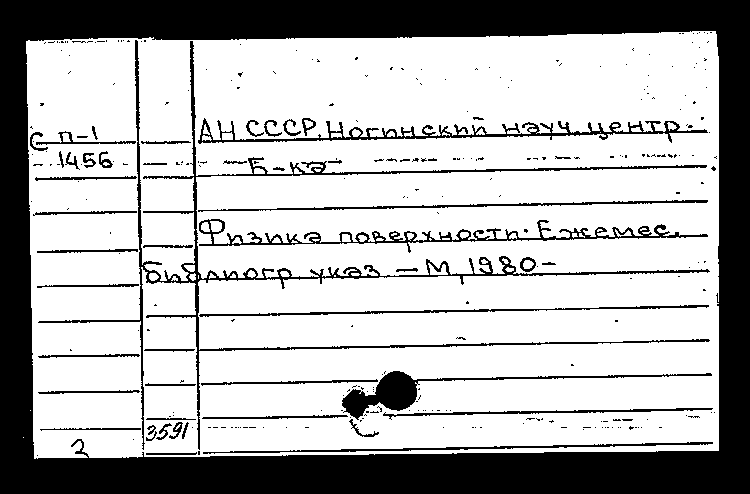 С П-1
1456
АН СССР. Ногинский науч. центр.
Б-ка
Физика поверхности. Ежемес.
библиогр указ — М, 1980-
3591
2